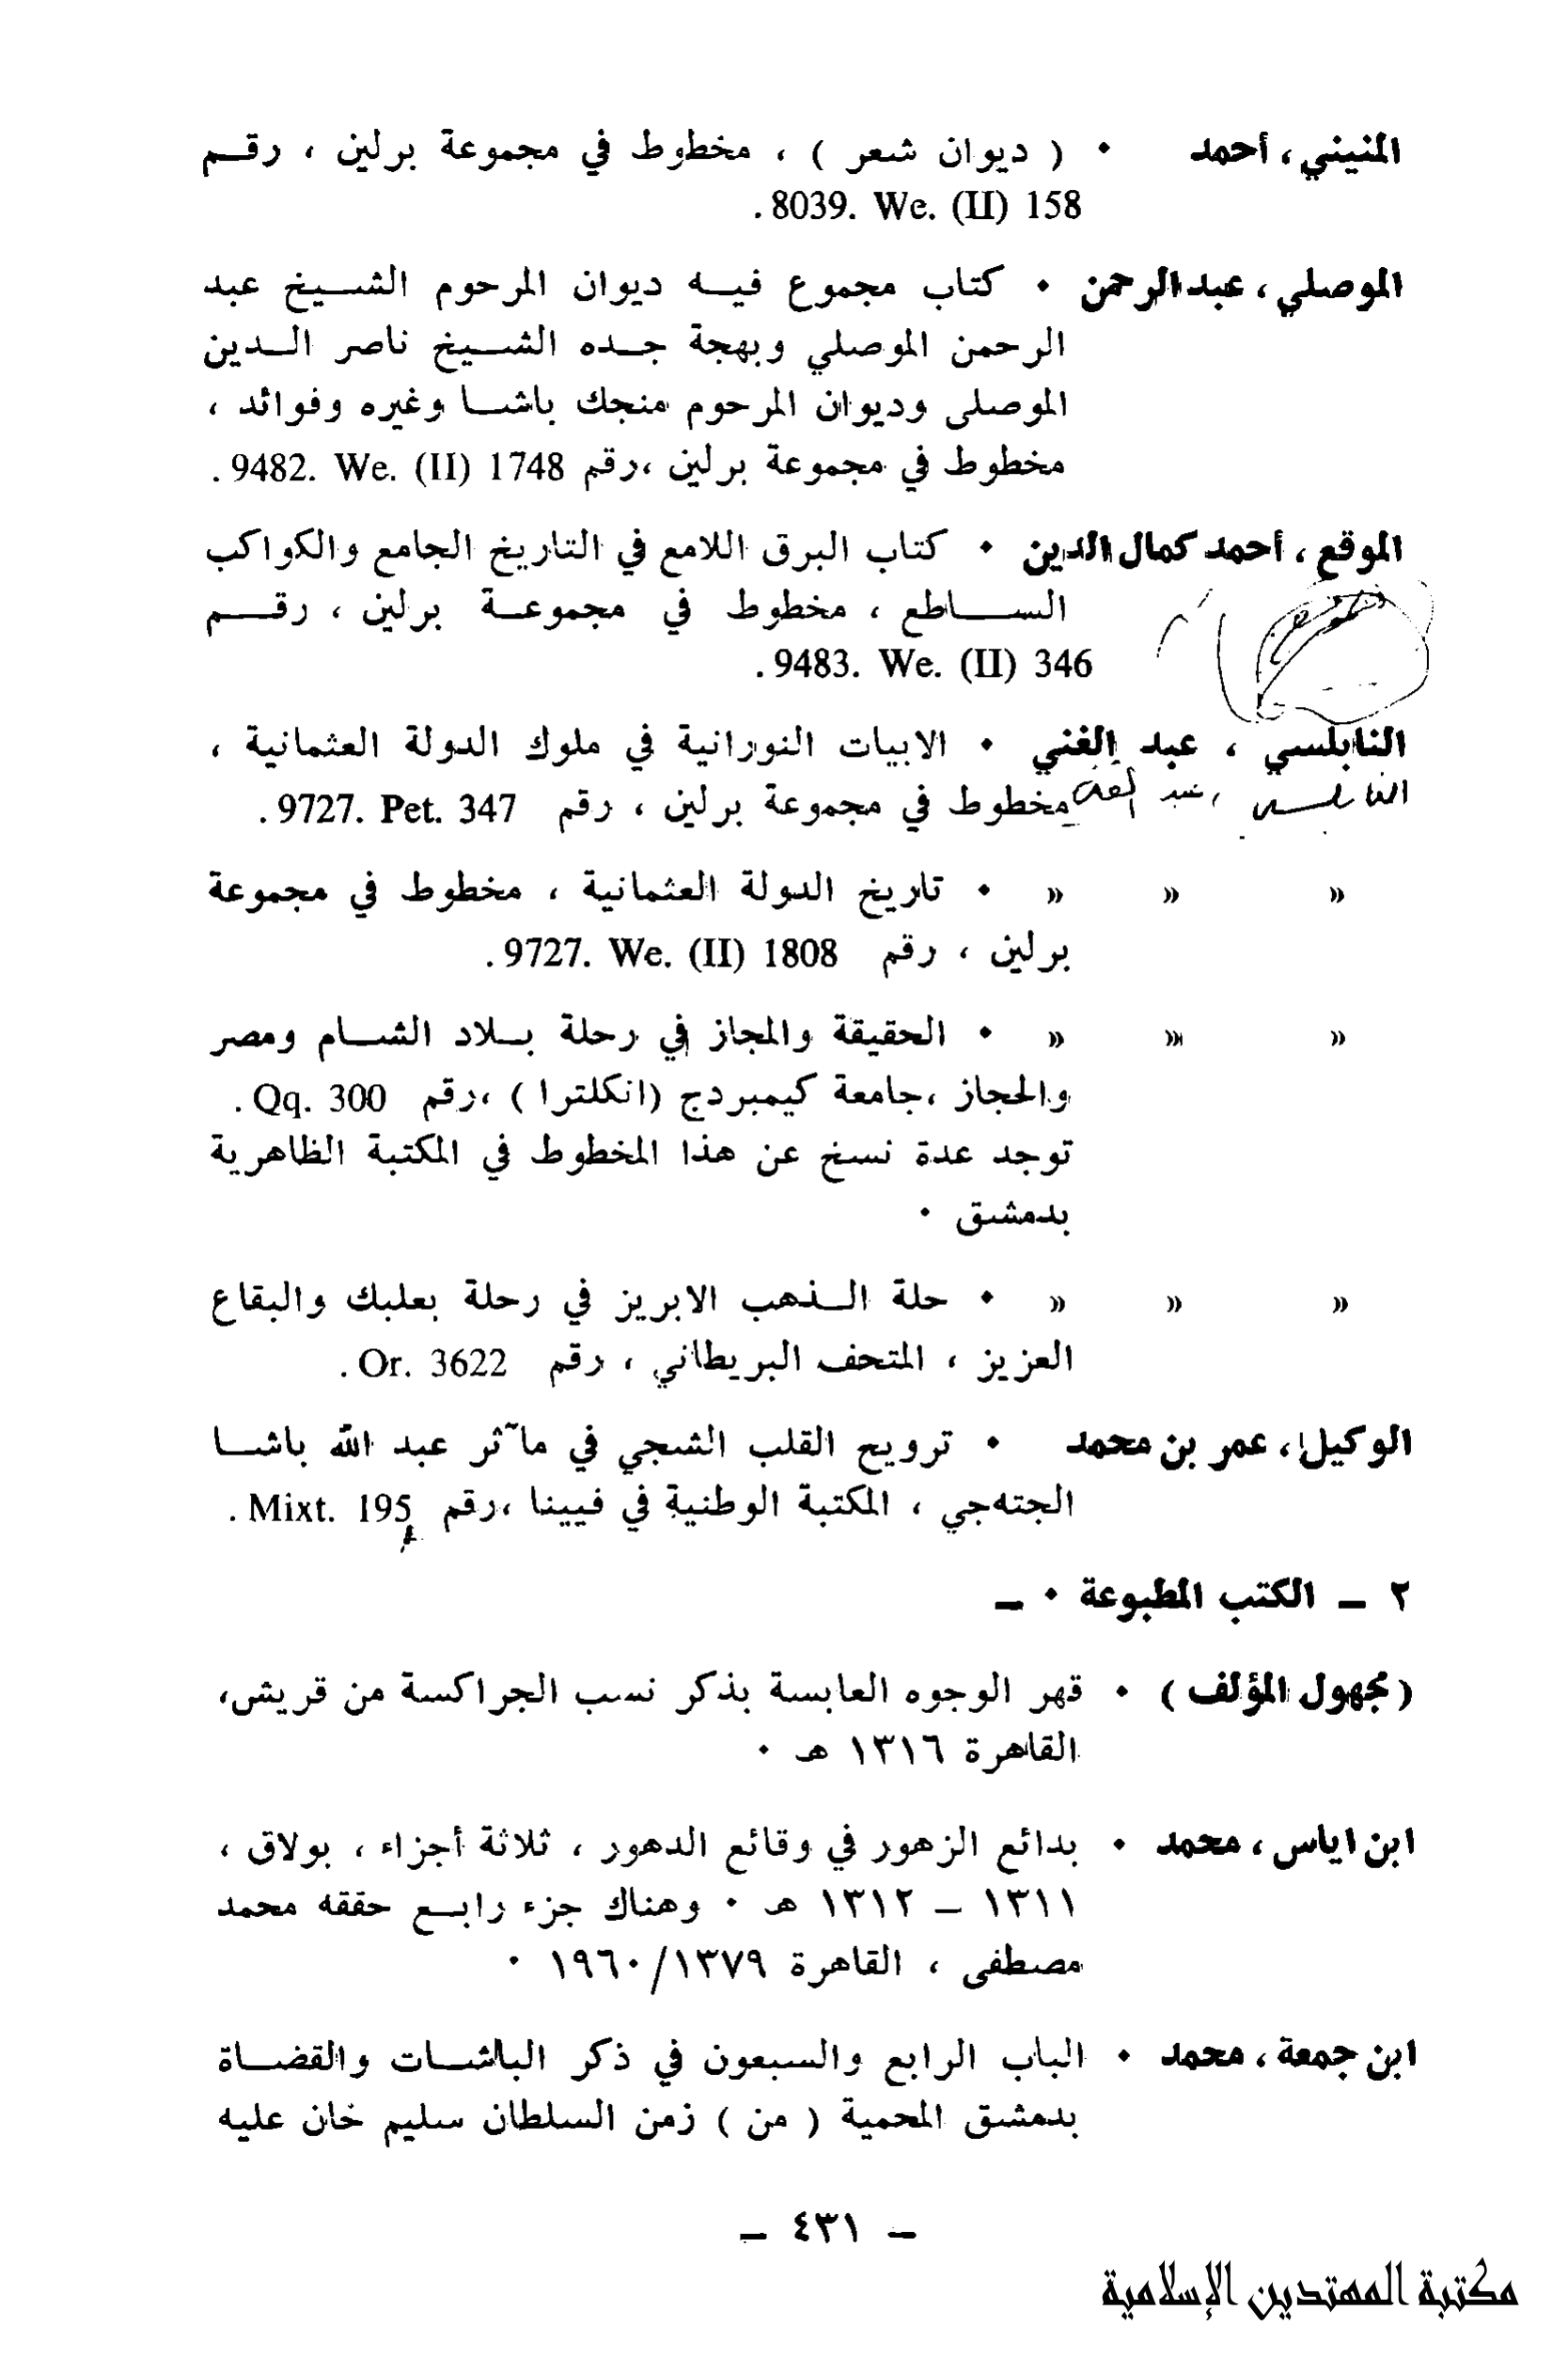 المنيني، أحمد ٠ ( ديوان شعر ) ، مخطوط في مجموعة برلين ، رقـم
8039. We. (II) 158 .
الموصلي، عبدالرحمن ٠ كتاب مجموع فيـه ديوان المرحوم الشـيخ عبد
الرحمن الموصلي وبهجة جـده الشـيخ ناصر الـدين
الموصلى وديوان المرحوم منجك باشـا وغيره وفوائد ،
مخطوط في مجموعة برلين ،رقم 9482. We. (II) 1748 .
الموقع، أحمد كمال الدين ٠ كتاب البرق اللامع في التاريخ الجامع والكواكب
السـاطع ، مخطوط في مجموعـة برلين ، رقـم
9483. We. (II) 346 .
النابلسي ، عبد الغني ٠ الابيات النورانية في ملوك الدولة العثمانية ،
النابلسي ، عبد مخطوط في مجموعة برلين ، رقم 9727. Pet. 347 .
» » » ٠ تاريخ الدولة العثمانية ، مخطوط في مجموعة
برلين ، رقم 9727. We. (II) 1808 .
» » » ٠ الحقيقة والمجاز في رحلة بـلاد الشـام ومصر
والحجاز ،جامعة كيمبردج (انكلترا ) ،رقم Qq. 300 .
توجد عدة نسخ عن هذا المخطوط في المكتبة الظاهرية
بدمشق ٠
» » » ٠ حلة الـذهب الابريز في رحلة بعلبك والبقاع
العزيز ، المتحف البريطاني ، رقم Or. 3622 .
الوكيل، عمر بن محمد ٠ ترويح القلب الشجي في مآثر عبد الله باشـا
الجتهجي ، المكتبة الوطنية في فيينا ،رقم Mixt. 195 .
٢ ـ الكتب المطبوعة ٠ ـ
( مجهول المؤلف ) ٠ قهر الوجوه العابسة بذكر نسب الجراكسة من قريش،
القاهرة ١٣١٦ هـ ٠
ابن اياس، محمد ٠ بدائع الزهور في وقائع الدهور ، ثلاثة أجزاء ، بولاق ،
١٣١١ ـ ١٣١٢ هـ ٠ وهناك جزء رابـع حققه محمد
مصطفى ، القاهرة ١٣٧٩/١٩٦٠ ٠
ابن جمعة، محمد ٠ الباب الرابع والسبعون في ذكر الباشـات والقضـاة
بدمشق المحمية ( من ) زمن السلطان سليم خان عليه
ـ ٤٣١ ـ
مكتبة المهتدين الإسلامية